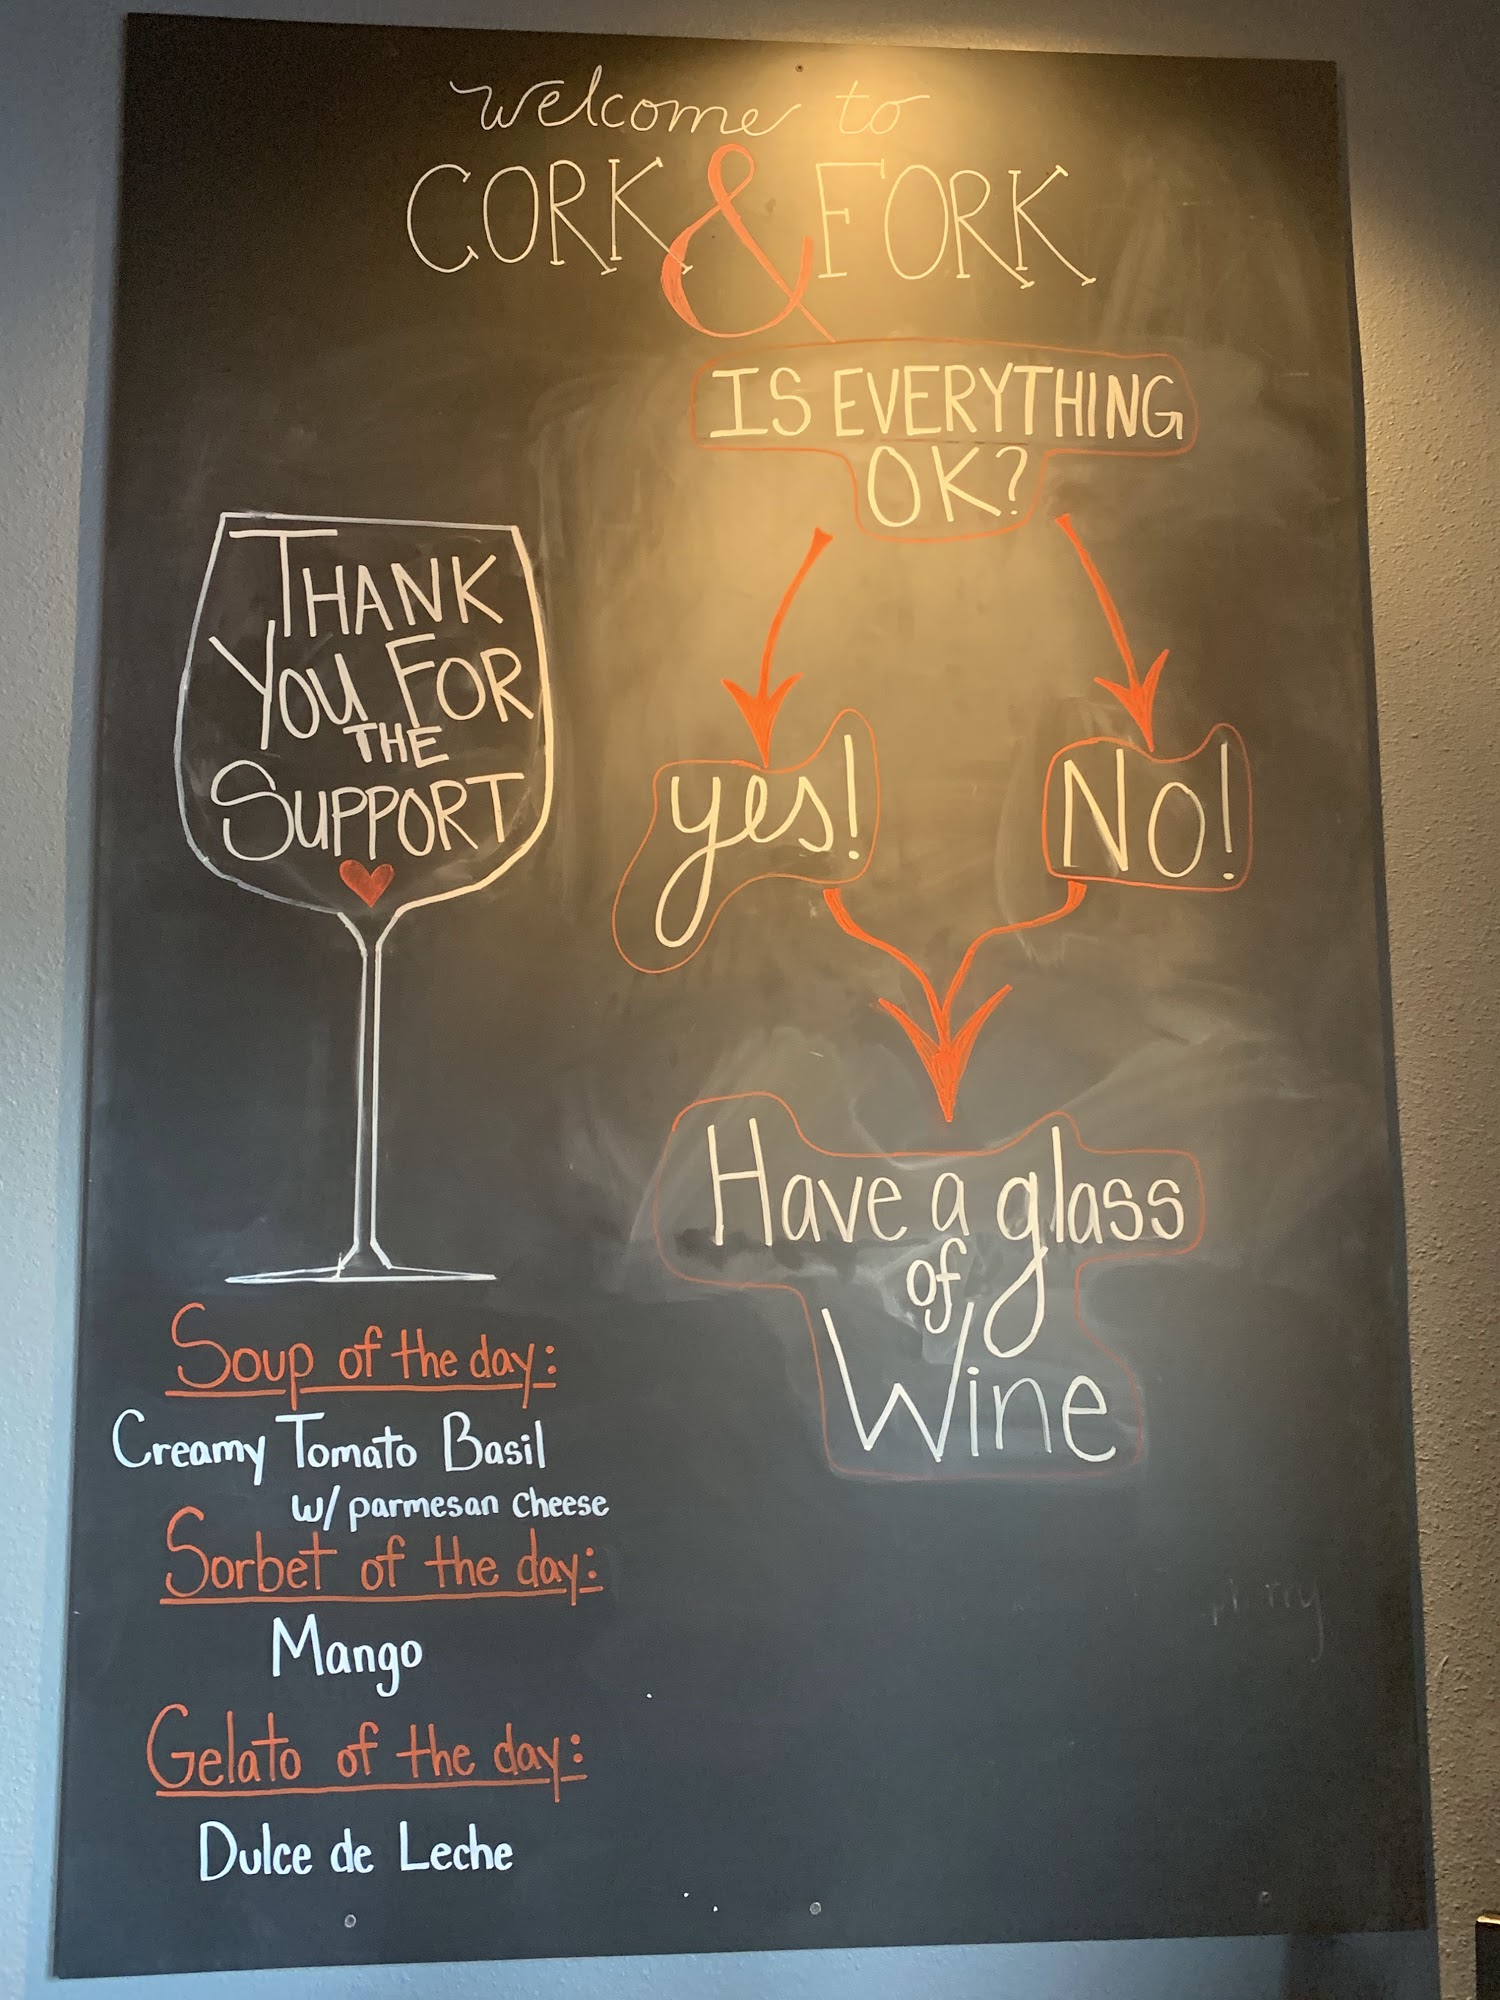 welcome to
CORK & FORK
IS EVERYTHING
OK?
yes!
No!
Have a glass
of
Wine
THANK
YOU FOR
THE
SUPPORT
Soup of the day:
Creamy Tomato Basil
w/ parmesan cheese
Sorbet of the day:
Mango
Gelato of the day:
Dulce de Leche